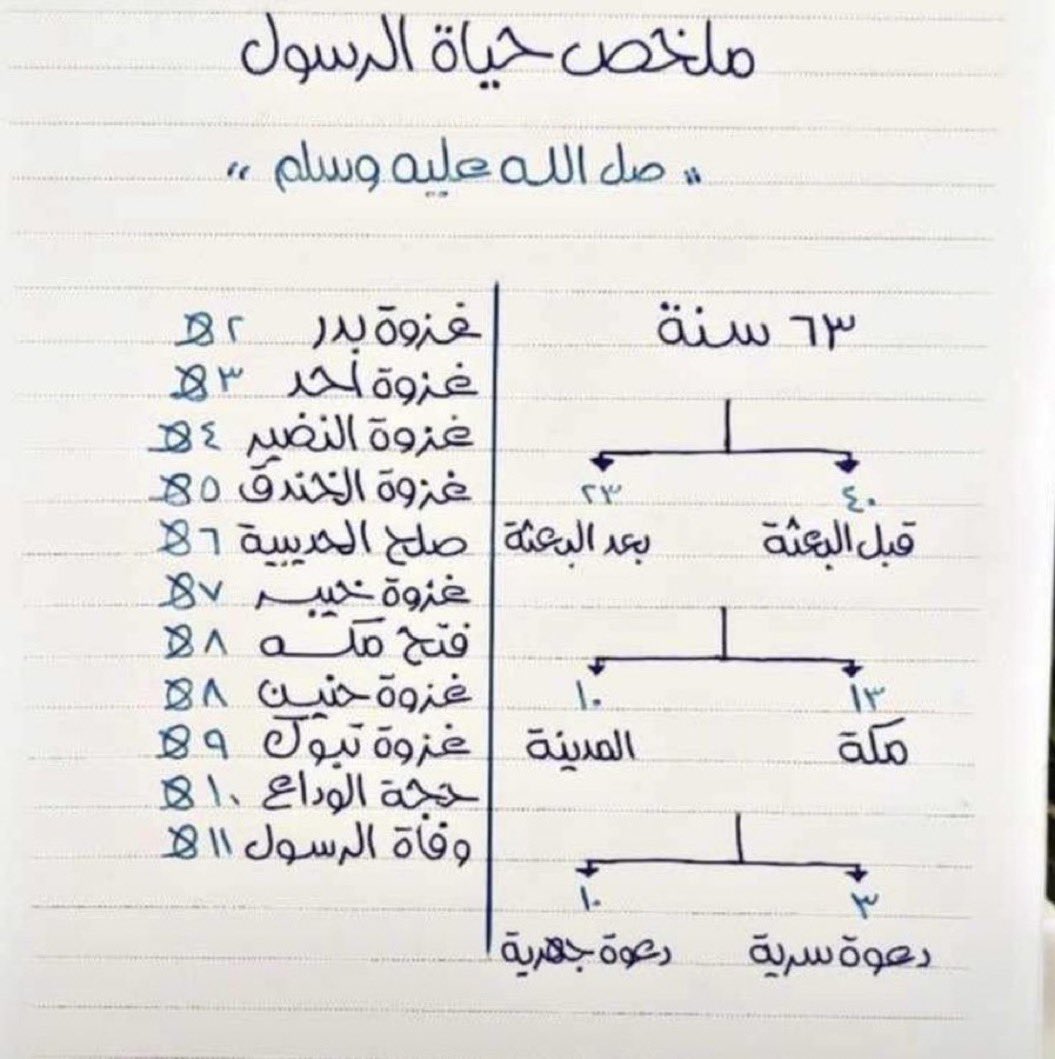 ملخص حياة الرسول
" صل الله عليه وسلم "
٦٣ سنة
٤٠ ٢٣
قبل البعثة بعد البعثة
١٣ ١٠
مكة المدينة
٣ ١٠
دعوة سرية دعوة جهرية
غزوة بدر ٢ هـ
غزوة أحد ٣ هـ
غزوة النضير ٤ هـ
غزوة الخندق ٥ هـ
صلح الحديبية ٦ هـ
غزوة خيبر ٧ هـ
فتح مكه ٨ هـ
غزوة حنين ٨ هـ
غزوة تبوك ٩ هـ
حجة الوداع ١٠ هـ
وفاة الرسول ١١ هـ